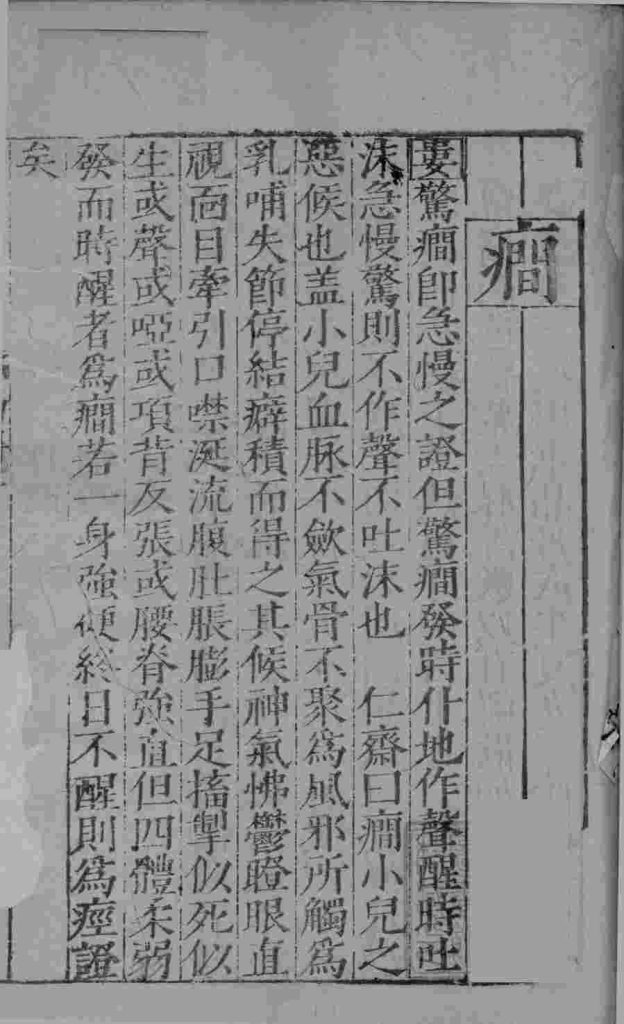 癇
婁驚癇即急慢之證但驚癇發時仆地作聲醒時吐
沫急慢驚則不作聲不吐沫也　仁齋曰癇小兒之
惡候也盖小兒血脉不歛氣骨不聚為風邪所觸為
乳哺失節停結癖積而得之其候神氣怫鬱瞪眼直
視面目牽引口噤涎流腹肚脹膨手足搐掣似死似
生或聲或啞或項背反張或腰脊強直但四體柔弱
發而時醒者為癇若一身強硬終日不醒則為痙證
矣